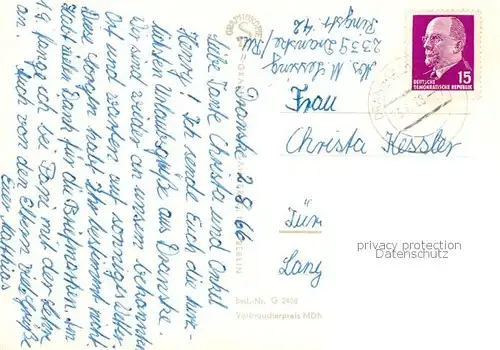 Dranske 2.8.66
Liebe Tante Christa und Onkel
Henry! Ich sende Euch die herz-
lichsten Urlaubsgrüße aus Dranske.
Wir sind wieder an unserem bekannten
Ort und warten auf sonniges Wetter.
Diese Sorgen habt Ihr bestimmt nicht.
Habt vielen Dank für die Briefmarken. Am
19. fange ich bei Papi mit der Lehre
an. Auch von den Eltern viele Grüße
Euer Matthias
Abs. M. Lessing
2339 Dranske/Rü
Ringstr. 42
15
DEUTSCHE
DEMOKRATISCHE REPUBLIK
Frau
Christa Kessler
Tür
Lang
privacy protection
Datenschutz
BERLIN
Best.-Nr. G 2408
Verbraucherpreis MDN